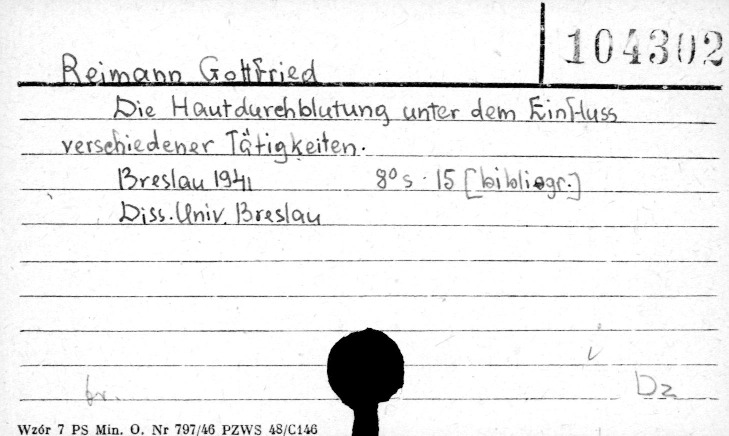 104302
Reimann Gottfried
Die Hautdurchblutung unter dem Einfluss
verschiedener Tätigkeiten.
Breslau 1941 8° s. 15 [bibliogr.]
Diss. Univ. Breslau
Dz
Wzór 7 PS Min. O. Nr 797/46 PZWS 48/C146